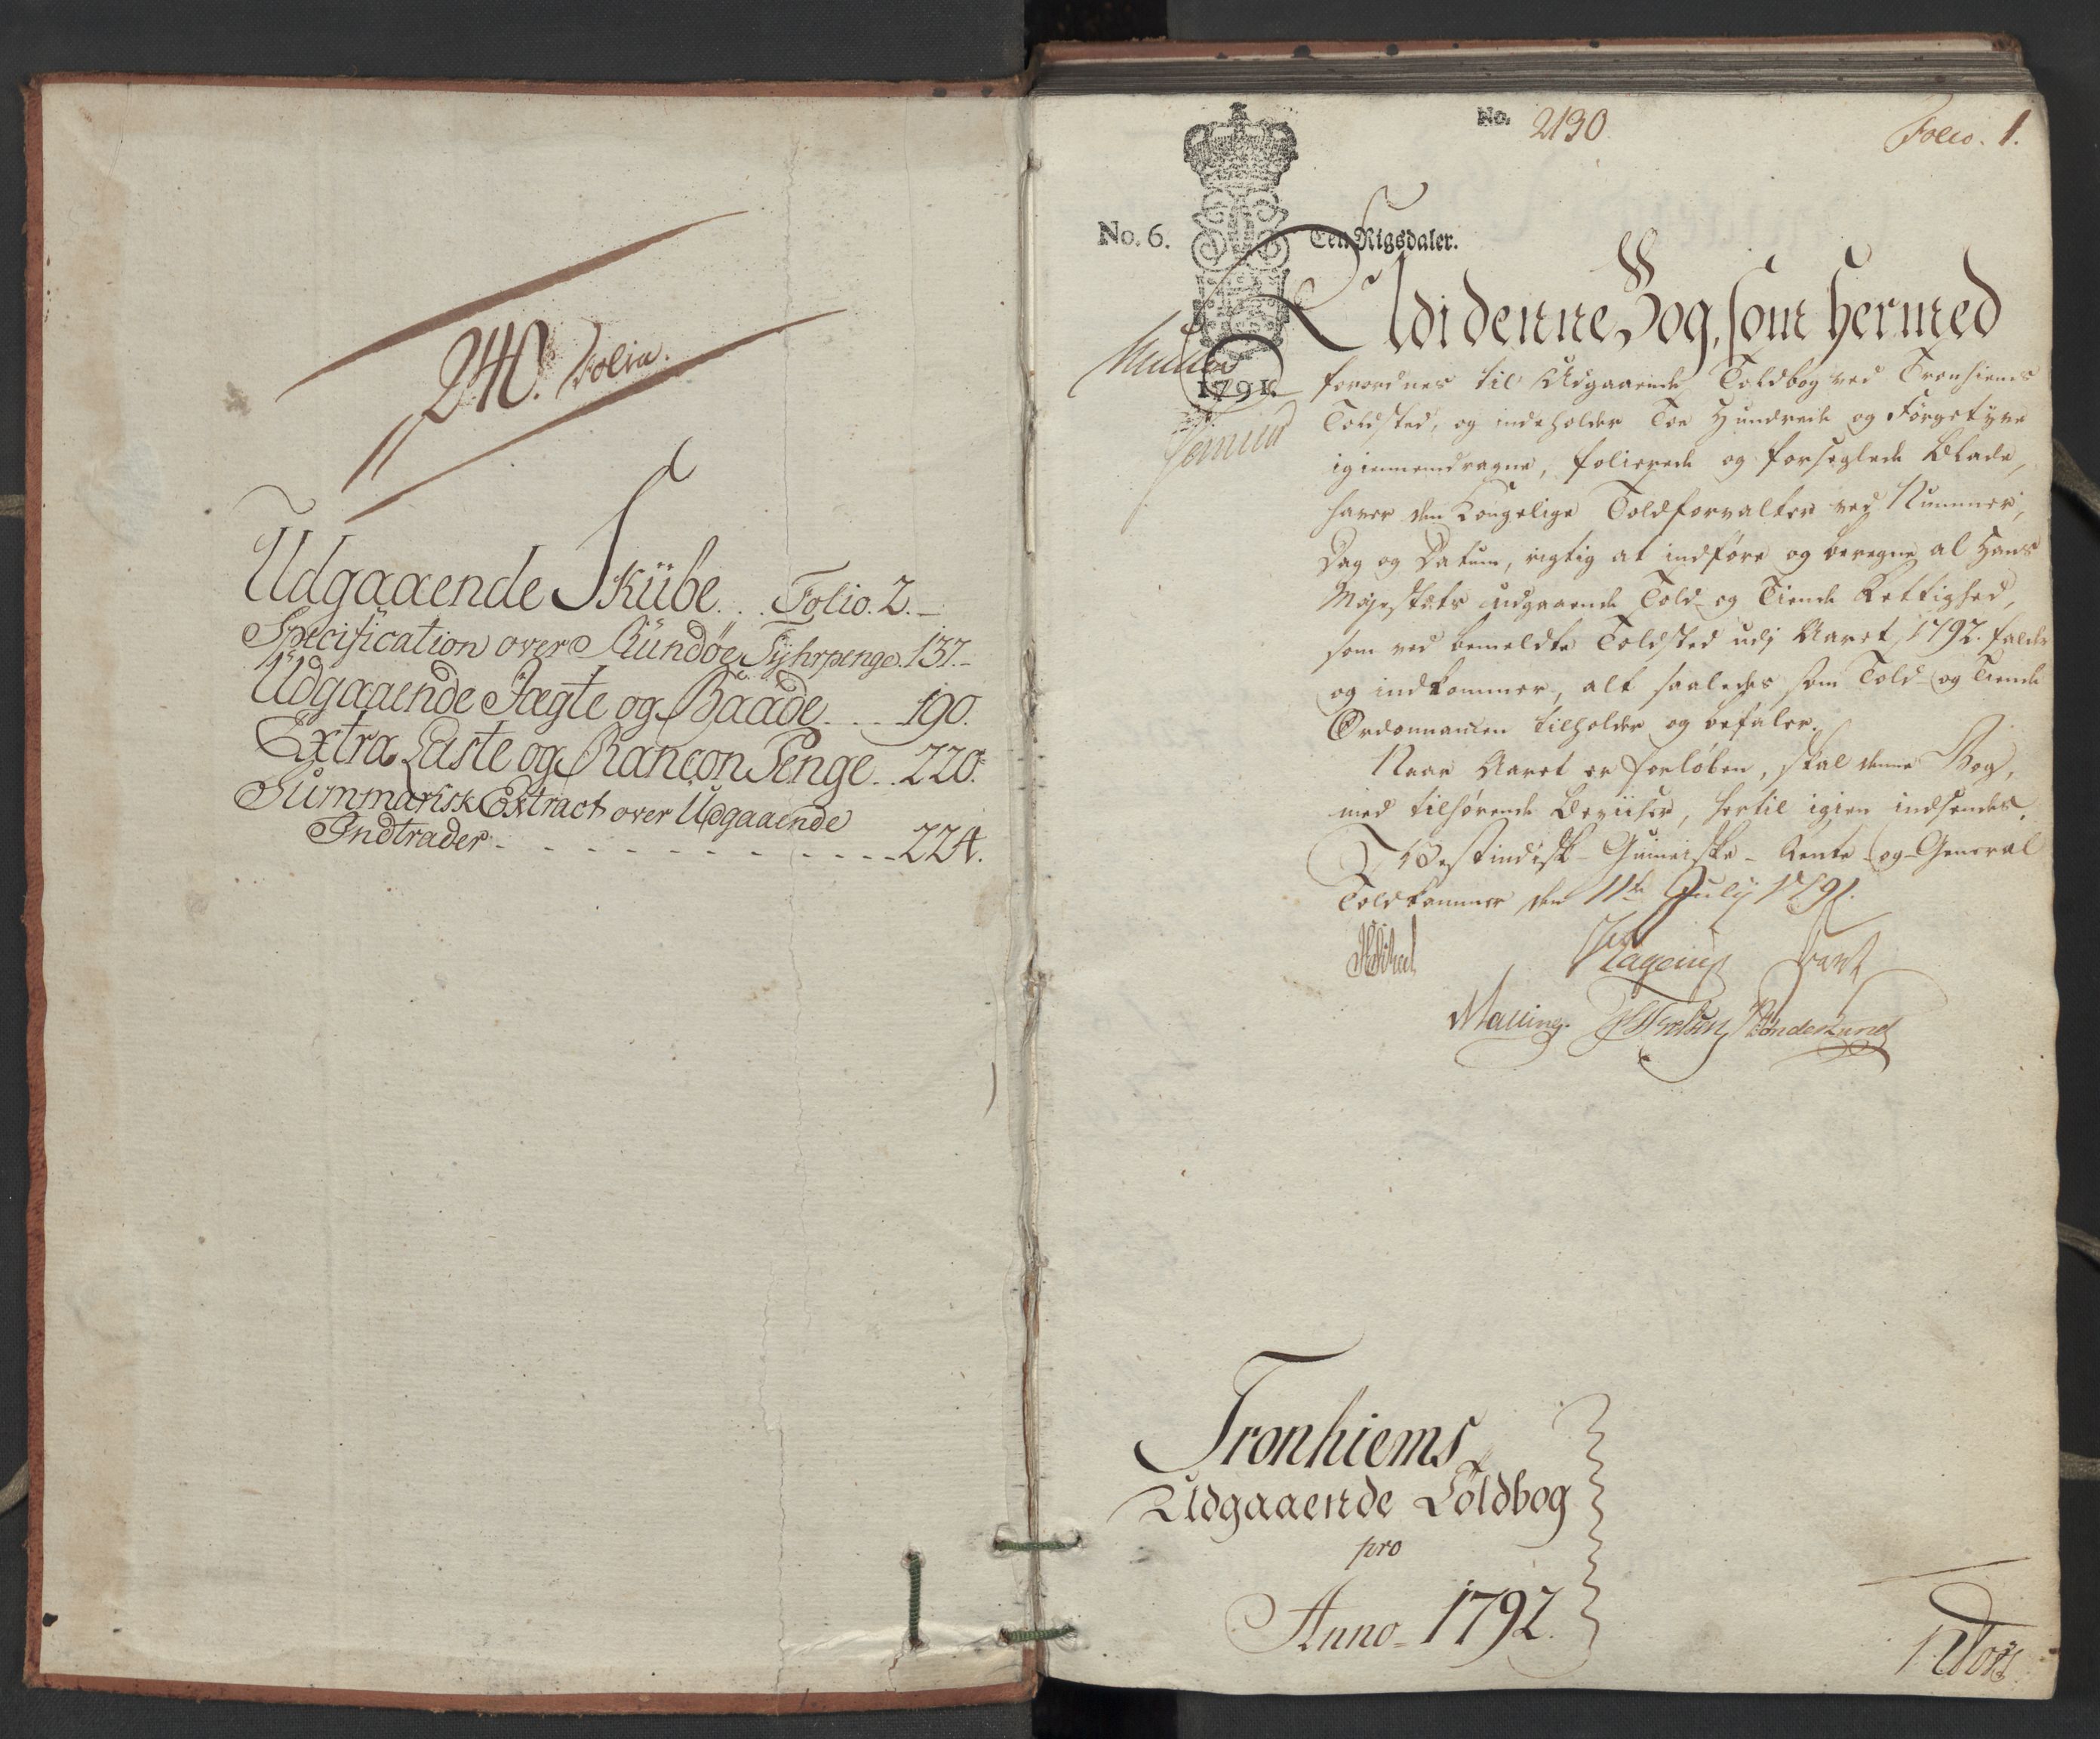 240. Folia.
Udgaaende Skübe... Folio. 2.
Specification over Kündøe Fyhrpenge. 137.
Udgaaende Jægte og Baade.... 190.
Extra Laste og Rancon Penge... 220.
Summarisk Extract over Udgaaende
Indtrader - - - - - - - - - - - 224.
No. 2130
Folio. 1.
No. 6.
Een Rigsdaler.
1791.
Udi denne Bog, som hermed
forordnes til Udgaaende Toldbog ved Tronhiems
Toldsted, og indeholder Toe Hundrede og Førgetyve
igiennemdragne, folierede og forseglede Blade,
haver den Kongelige Toldforvalter ved Nummer,
Dag og Datum, rigtig at indføre og beregne al Hans
Majestæts udgaaende Told- og Tiende Rettighed,
som ved bemeldte Toldsted udj Aaret 1792. falder
og indkommer, alt saaledes som Told- og Tiende
Ordonnancen tilholder og befaler.
Naar Aaret er forløben, skal denne Bog,
med tilhørende Beviiser, hertil igien indsendes.
Vestindisk- Guineiske- Rente- og- General
Toldkammer den 11te July 1791.
Malling.
Tronhiems
Udgaaende Toldbog
pro
Anno 1792.